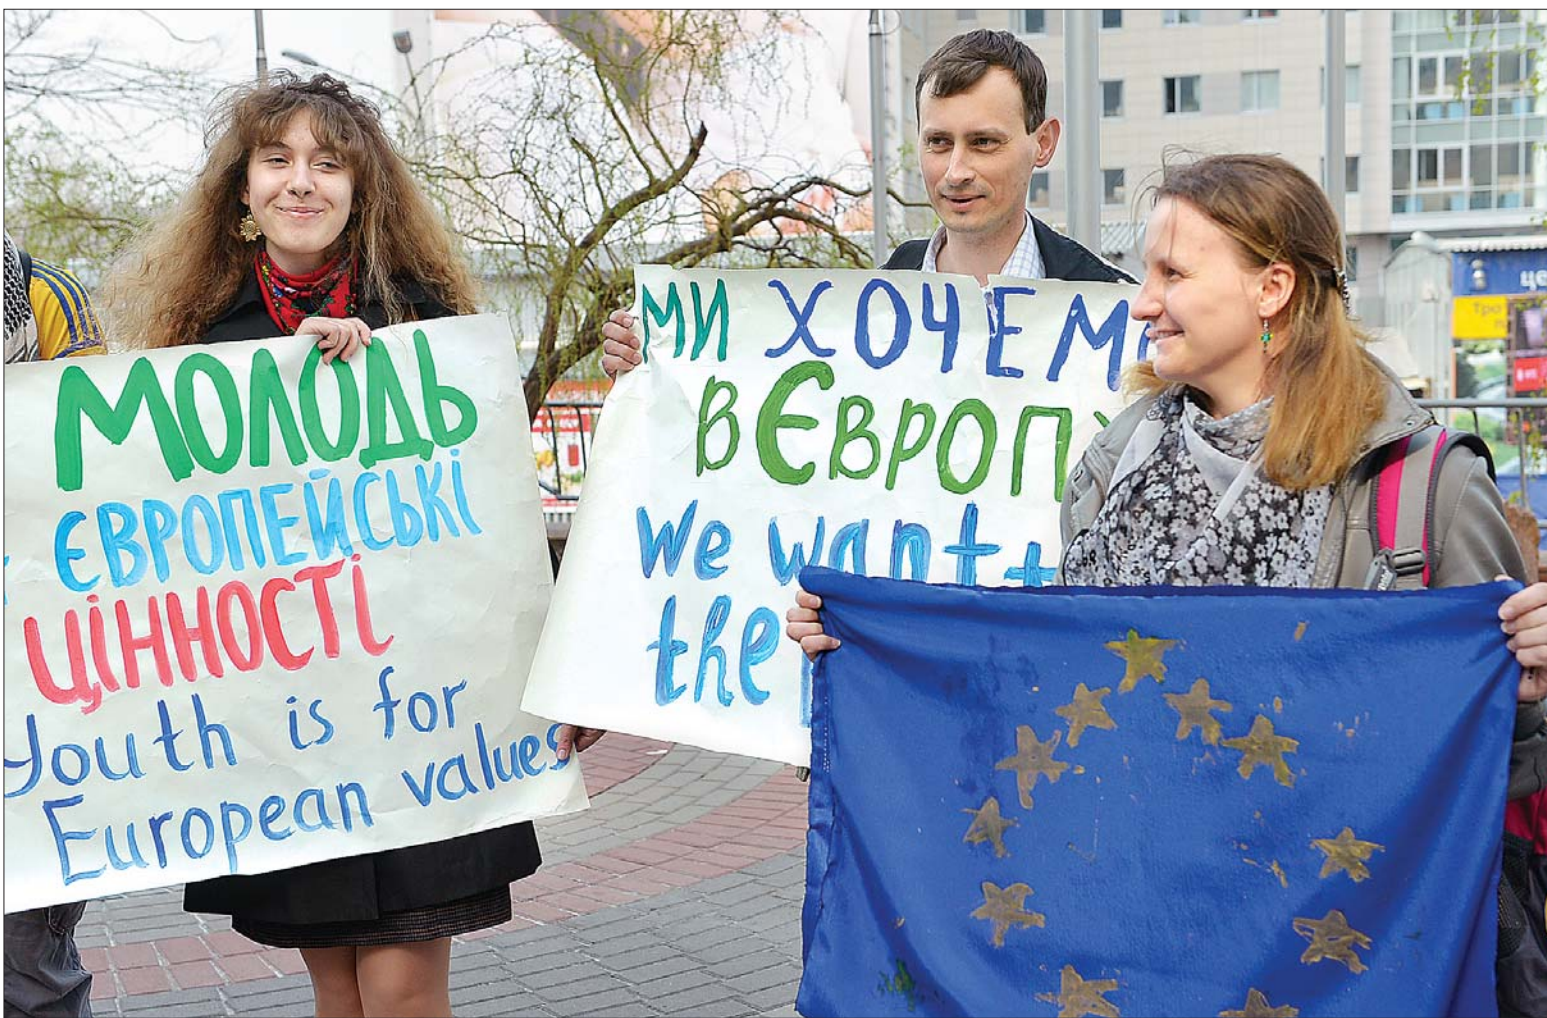 МОЛОДЬ
ЄВРОПЕЙСЬКІ
ЦІННОСТІ
Youth is for
European values
МИ ХОЧЕМ
В ЄВРОП
We want t
the
це
Тро